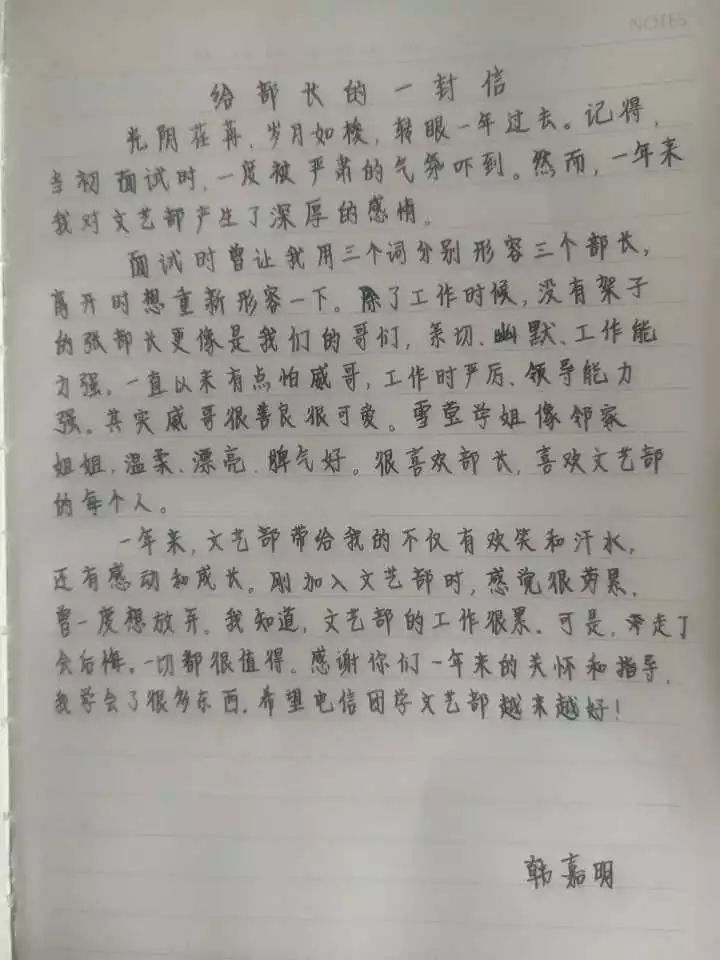 NOTES
给部长的一封信
光阴荏苒,岁月如梭,转眼一年过去。记得,
当初面试时,一度被严肃的气氛吓到。然而,一年来
我对文艺部产生了深厚的感情。
面试时曾让我用三个词分别形容三个部长,
离开时想重新形容一下。除了工作时候,没有架子
的张部长更像是我们的哥们,亲切、幽默、工作能
力强。一直以来有点怕威哥,工作时严厉、领导能力
强。其实威哥很善良很可爱。雪莹学姐像邻家
姐姐,温柔、漂亮、脾气好。很喜欢部长,喜欢文艺部
的每个人。
一年来,文艺部带给我的不仅有欢笑和汗水,
还有感动和成长。刚加入文艺部时,感觉很劳累,
曾一度想放弃。我知道,文艺部的工作很累。可是,走了
会后悔。一切都很值得。感谢你们一年来的关怀和指导,
我学会了很多东西。希望电信团学文艺部越来越好!
韩嘉明